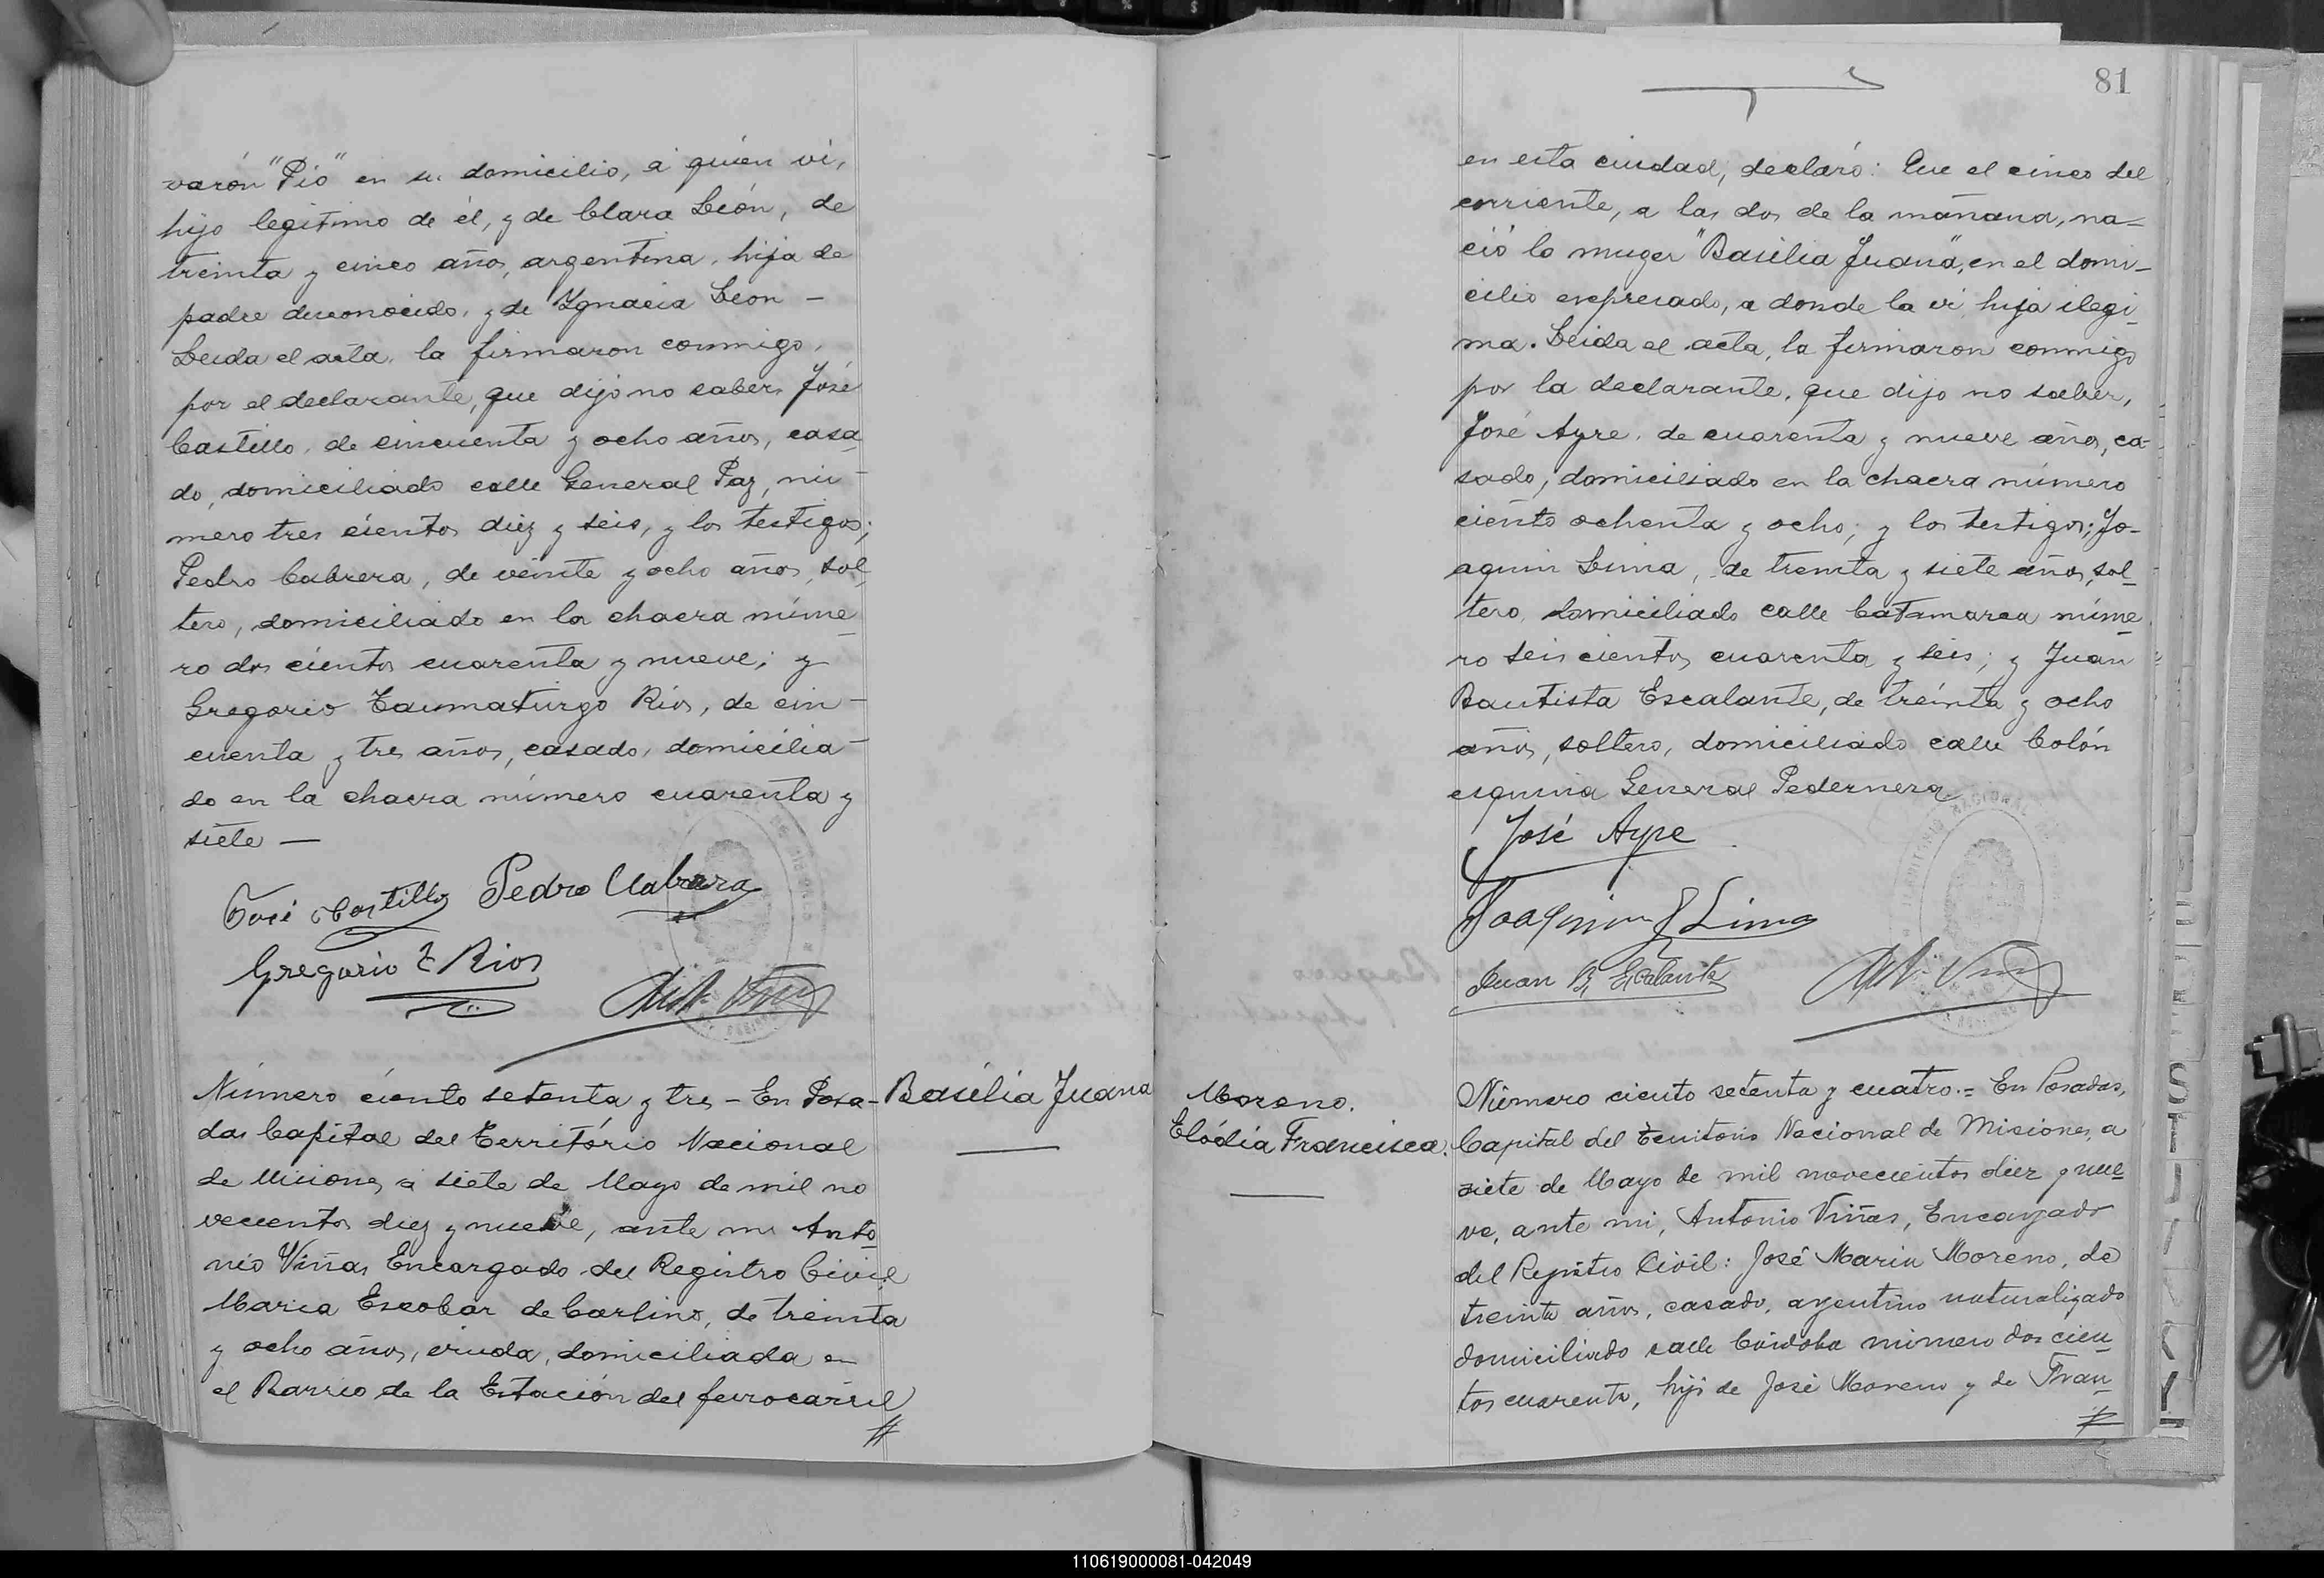 varón "Pío" en su domicilio, á quien vi,
hijo legítimo de él, y de Clara León, de
treinta y cinco años, argentina, hija de
padre desconocido, y de Ygnacia Leon —
Leida el acta, la firmaron conmigo,
por el declarante, que dijo no saber, José
Castillo, de cincuenta y ocho años, casa-
do, domiciliado calle General Paz, nú-
mero tres cientos diez y seis, y los testigos;
Pedro Cabrera, de veinte y ocho años, sol-
tero, domiciliado en la chacra núme-
ro dos cientos cuarenta y nueve; y
Gregorio Taumaturgo Ríos, de cin-
cuenta y tres años, casado, domicilia-
do en la chacra número cuarenta y
siete —
José Castillo Pedro Cabrera
Gregorio T Rios
Número ciento setenta y tres — En Posa-
das Capital del Território Nacional
de Misiones, a siete de Mayo de mil no
vecientos diez y nueve, ante mi Anto-
nio Viñas Encargado del Registro Civil,
Maria Escobar de Carlino, de treinta
y ocho años, viuda, domiciliada en
el Barrio de la Estación del ferrocarril
#
Basilia Juana
81
en esta ciudad, declaró: Que el cinco del
corriente, a las dos de la mañana, na-
ció la muger "Basilia Juana", en el domi-
cilio expresado, a donde la vi, hija ilegi-
ma. Leida el acta, la firmaron conmigo
por la declarante, que dijo no saber,
José Ayre, de cuarenta y nueve años, ca-
sado, domiciliado en la chacra número
ciento ochenta y ocho; y los testigos; Jo-
aquin Lima, de treinta y siete años, sol-
tero, domiciliado calle Catamarca núme-
ro seis cientos cuarenta y seis; y Juan
Bautista Escalante, de treinta y ocho
años, soltero, domiciliado calle Colón
esquina General Pedernera
José Ayre
Joaquin Lima
Juan B. Escalante
Moreno.
Elódia Francisca.
Número ciento setenta y cuatro.= En Posadas,
Capital del Territorio Nacional de Misiones, a
siete de Mayo de mil novecientos diez y nue-
ve, ante mi, Antonio Viñas, Encargado
del Registro Civil: José Maria Moreno, de
treinta años, casado, argentino naturalizado
domiciliado calle Córdoba número dos cien-
tos cuarenta, hijo de José Moreno y de Fran-
#
110619000081-042049